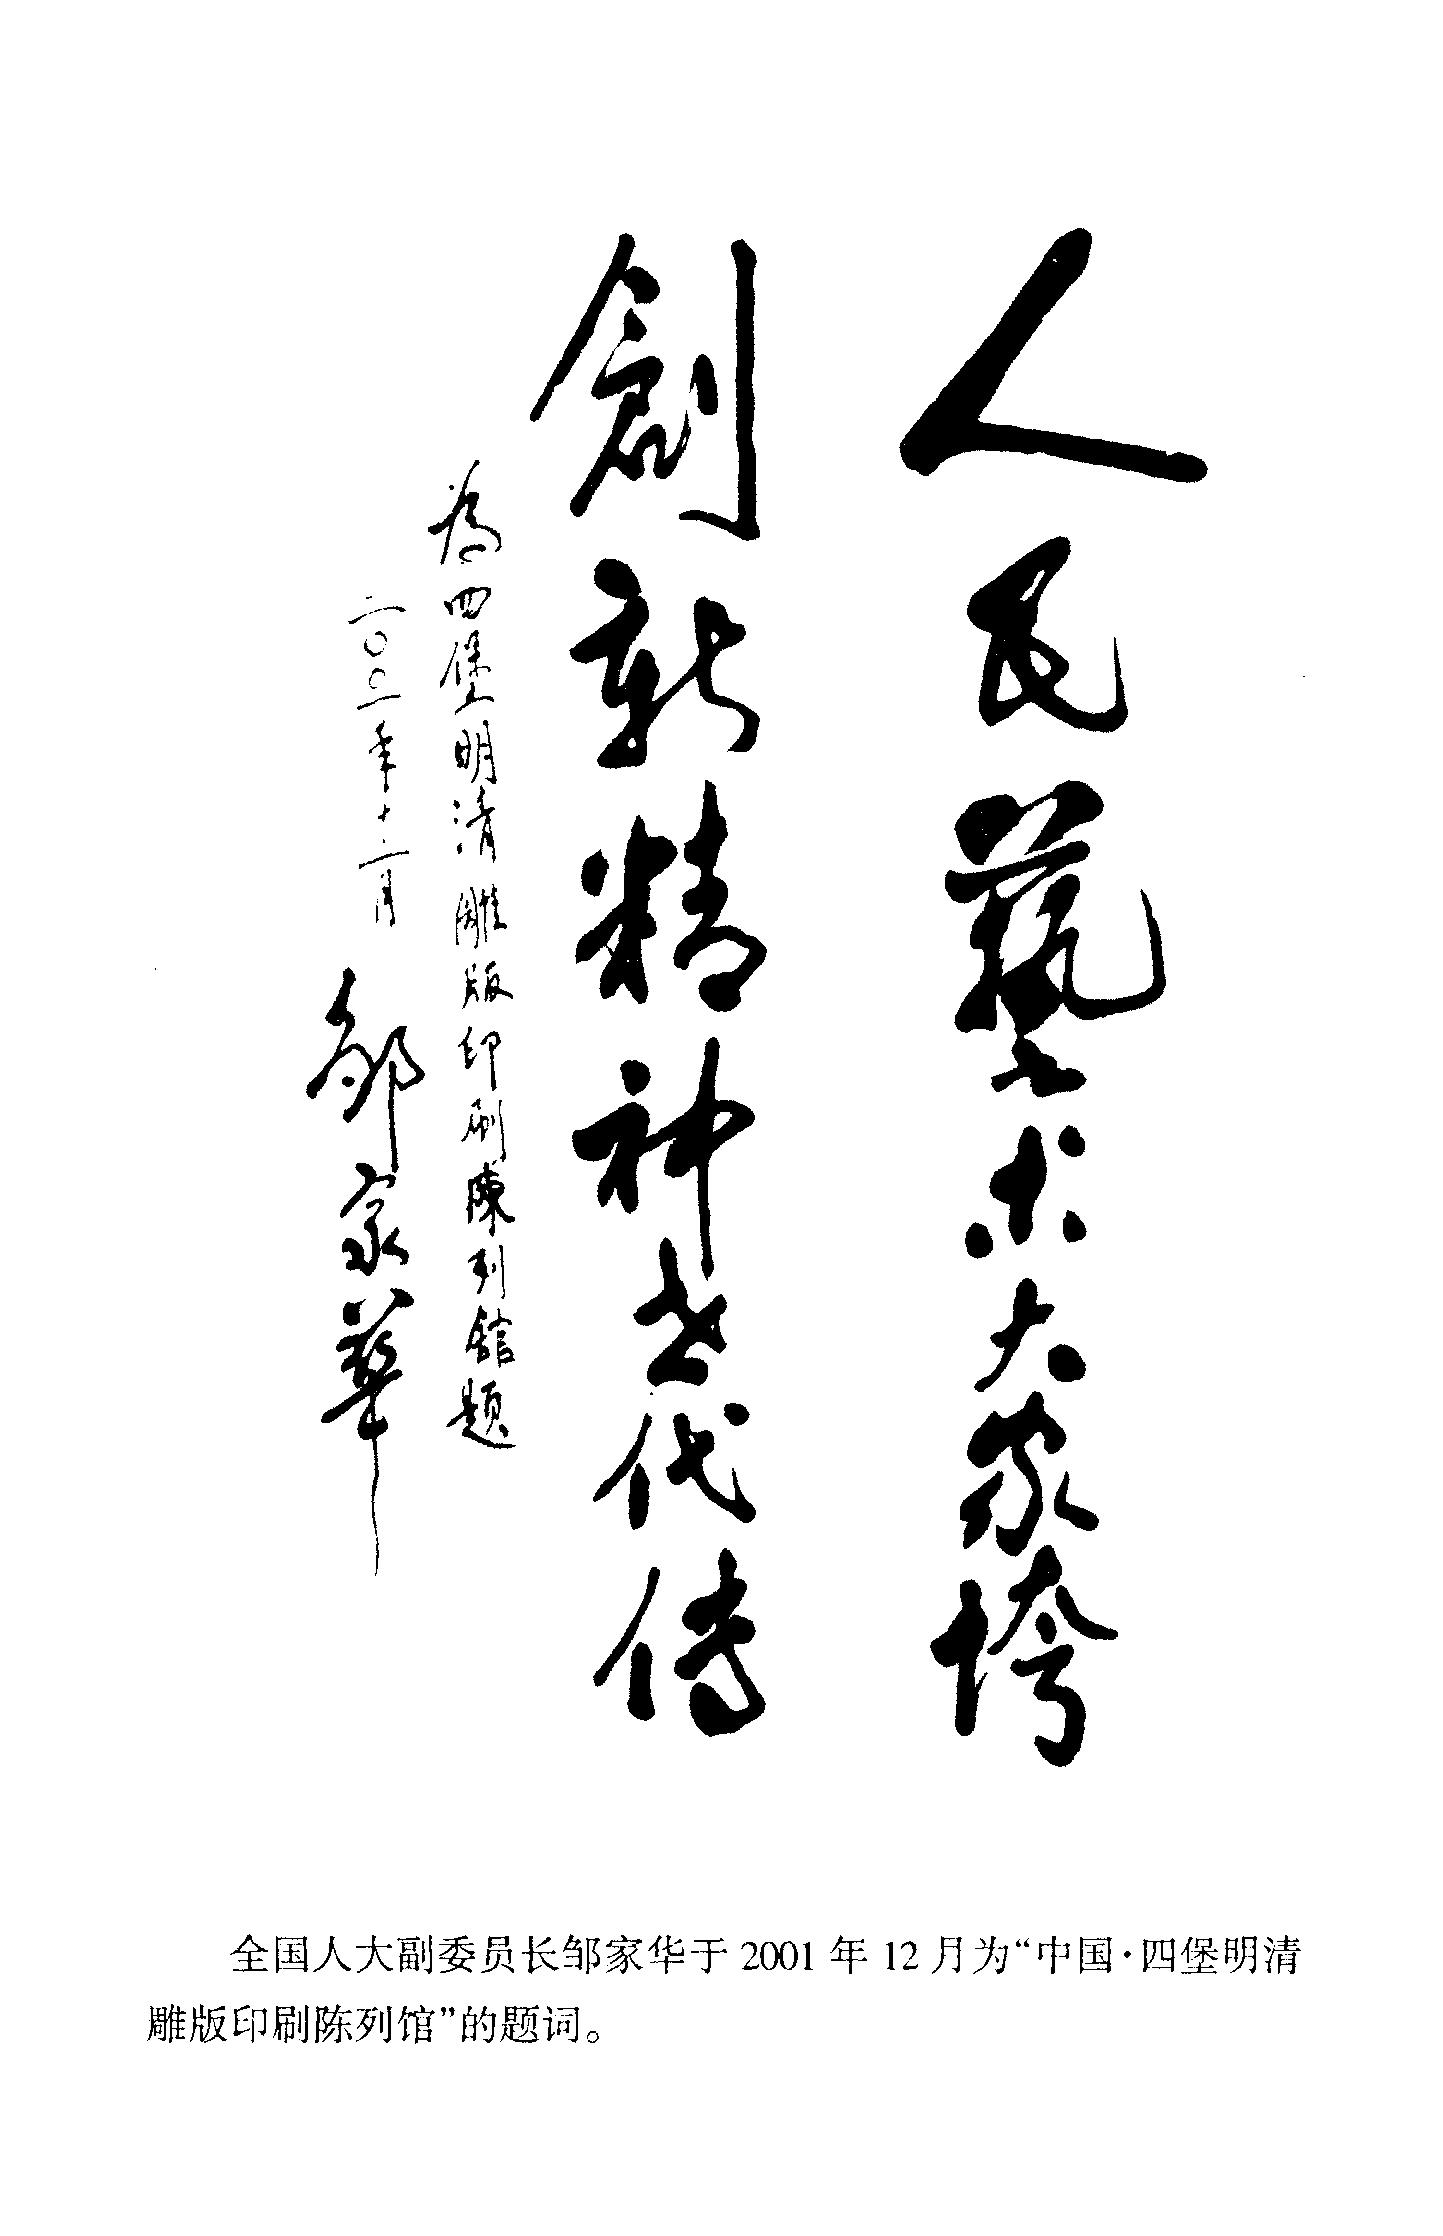 人民藝术大家垮
創新精神世代传
为四堡明清雕版印刷陳列館題
二〇〇一年十二月 鄒家華
全国人大副委员长邹家华于 2001 年 12 月为“中国·四堡明清
雕版印刷陈列馆”的题词。